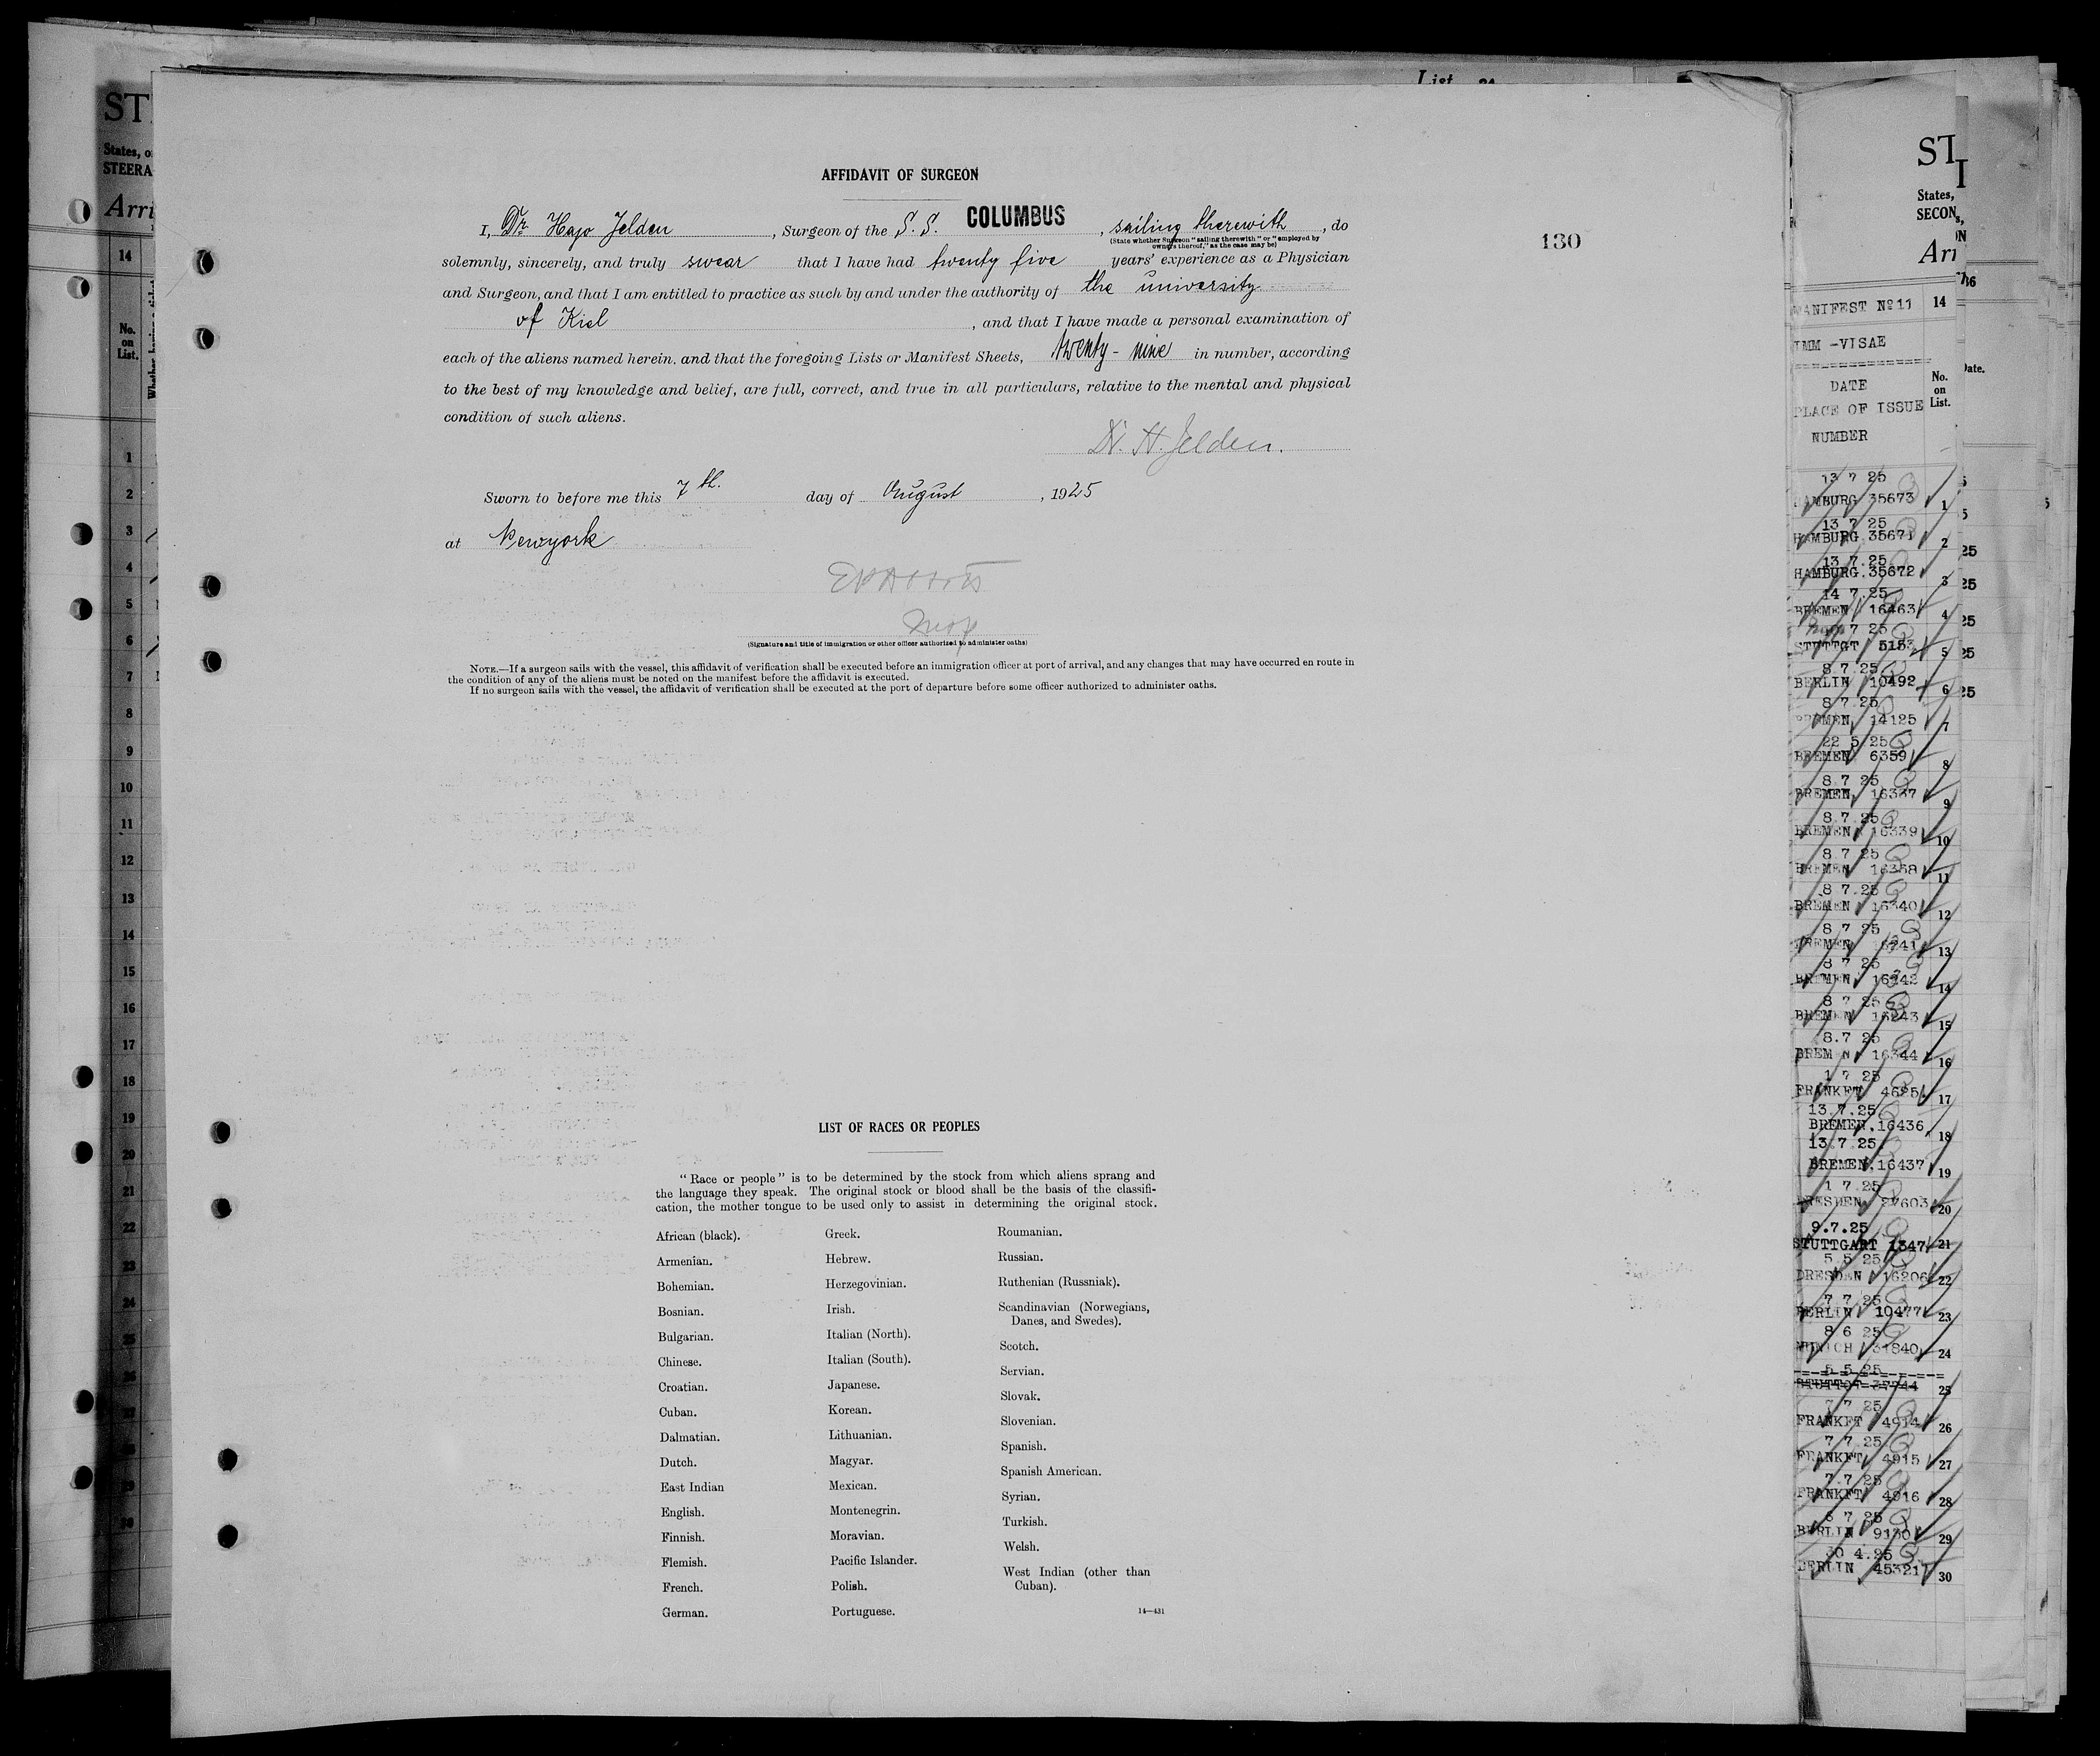 List
ST
States, o
STEERA
Arri
14
No.
on
List.
1
2
3
4
5
6
7
8
9
10
11
12
13
14
15
16
17
18
19
20
21
22
23
24
25
26
27
28
29
30
AFFIDAVIT OF SURGEON
130
I, Dr. Hajo Jelden, Surgeon of the S. S. COLUMBUS, sailing therewith, do
(State whether Surgeon "sailing therewith" or "employed by
owners thereof," as the case may be)
solemnly, sincerely, and truly swear that I have had twenty five years' experience as a Physician
and Surgeon, and that I am entitled to practice as such by and under the authority of the university
of Kiel, and that I have made a personal examination of
each of the aliens named herein. and that the foregoing Lists or Manifest Sheets, twenty-nine in number, according
to the best of my knowledge and belief, are full, correct, and true in all particulars, relative to the mental and physical
condition of such aliens.
Dr. H. Jelden.
Sworn to before me this 7th. day of August, 1925
at Newyork
(Signature and title of immigration or other officer authorized to administer oaths)
NOTE.—If a surgeon sails with the vessel, this affidavit of verification shall be executed before an immigration officer at port of arrival, and any changes that may have occurred en route in
the condition of any of the aliens must be noted on the manifest before the affidavit is executed.
If no surgeon sails with the vessel, the affidavit of verification shall be executed at the port of departure before some officer authorized to administer oaths.
LIST OF RACES OR PEOPLES
"Race or people" is to be determined by the stock from which aliens sprang and
the language they speak. The original stock or blood shall be the basis of the classifi-
cation, the mother tongue to be used only to assist in determining the original stock.
African (black).
Armenian.
Bohemian.
Bosnian.
Bulgarian.
Chinese.
Croatian.
Cuban.
Dalmatian.
Dutch.
East Indian
English.
Finnish.
Flemish.
French.
German.
Greek.
Hebrew.
Herzegovinian.
Irish.
Italian (North).
Italian (South).
Japanese.
Korean.
Lithuanian.
Magyar.
Mexican.
Montenegrin.
Moravian.
Pacific Islander.
Polish.
Portuguese.
Roumanian.
Russian.
Ruthenian (Russniak).
Scandinavian (Norwegians,
Danes, and Swedes).
Scotch.
Servian.
Slovak.
Slovenian.
Spanish.
Spanish American.
Syrian.
Turkish.
Welsh.
West Indian (other than
Cuban).
14—431
ST
States,
SECON
Arr
MANIFEST No 11
14
IMM -VISAE
DATE
PLACE OF ISSUE
NUMBER
No.
on
List.
Date.
13 7 25
HAMBURG 35673 1
13 7 25
HAMBURG 35671 2
13 7.25
HAMBURG 35672 3
14 7.25
BREMEN 16463 4
7 25
STUTTGT 5153 5
8 7.25
BERLIN 10492 6
8 7 25
BREMEN 14125 7
22 5 25
BREMEN 6359 8
8 7 25
BREMEN 16337 9
8.7.25
BREMEN 16339 10
8 7 25
BREMEN 16338 11
8 7.25
BREMEN 16340 12
8 7 25
BREMEN 13
8 7 25
BREMEN 14
8 7 25
BREMEN 15
8.7 25
BREM N 16344 16
1 7 25
FRANKFT 4625 17
13.7.25
BREMEN 16436 18
13.7.25
BREMEN 16437 19
1 7.25
DRESDEN 27603 20
9.7.25
STUTTGART 1347 21
5 5 25
DRESDEN 16206 22
7 7 25
BERLIN 10477 23
8 6 25
MUNICH 31840 24
5 5 25
25
7 7 25
FRANKFT 4914 26
7 7 25
FRANKFT 4915 27
7.7 25
FRANKFT 4916 28
6 7 25
BERLIN 9130 29
30 4.25
BERLIN 45321 30